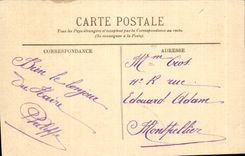 CARTE POSTALE
Tous les Pays étrangers n'acceptent pas la Correspondance au recto.
(Se renseigner à la Poste)
CORRESPONDANCE
Bien le bonjour
du Havre
ADRESSE
rue
Edouard Adam
Montpellier